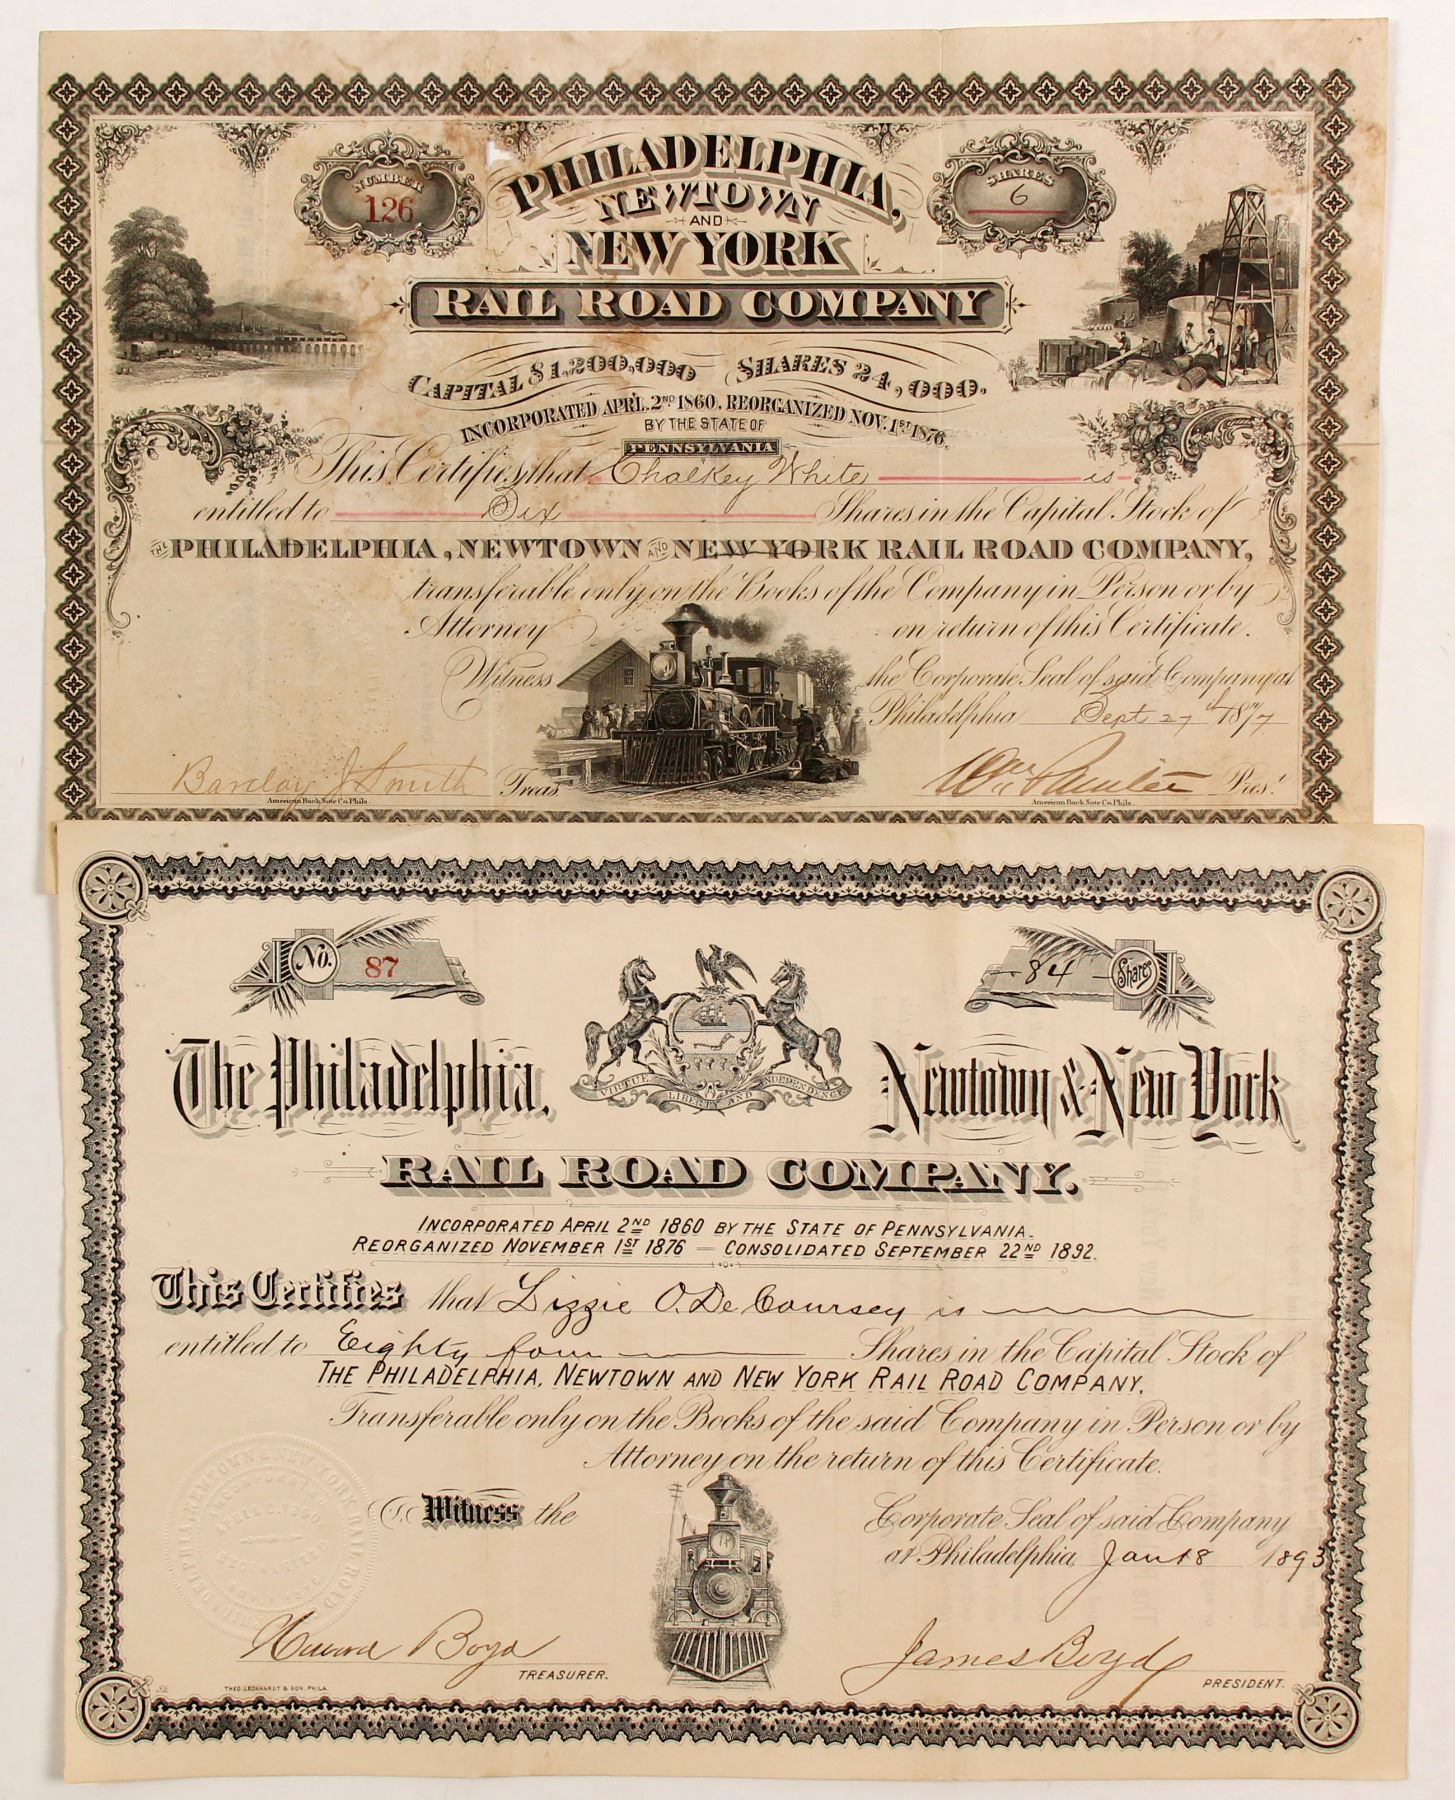 NUMBER
126
SHARES
6
PHILADELPHIA,
NEWTOWN
AND
NEW YORK
RAIL ROAD COMPANY
CAPITAL $1,200,000 SHARES 24,000.
INCORPORATED APRL. 2ND 1860. REORGANIZED NOV. 1ST 1876.
BY THE STATE OF
PENNSYLVANIA
This Certifies that Chalkey White is
entitled to Six Shares in the Capital Stock of
THE PHILADELPHIA, NEWTOWN AND NEW YORK RAIL ROAD COMPANY,
transferable only on the Books of the Company in Person or by
Attorney on return of this Certificate.
Witness the Corporate Seal of said Company at
Philadelphia Sept 27th 1877
Barclay J Smith Treas. Pres.t
American Bank Note Co. Phila. American Bank Note Co. Phila.
No. 87
84 Shares
VIRTUE LIBERTY AND INDEPENDENCE
The Philadelphia, Newtown & New York
RAIL ROAD COMPANY.
INCORPORATED APRIL 2ND 1860 BY THE STATE OF PENNSYLVANIA.
REORGANIZED NOVEMBER 1ST 1876 — CONSOLIDATED SEPTEMBER 22ND 1892.
This Certifies that Lizzie O. De Coursey is
entitled to Eighty four Shares in the Capital Stock of
THE PHILADELPHIA, NEWTOWN AND NEW YORK RAIL ROAD COMPANY,
Transferable only on the Books of the said Company in Person or by
Attorney on the return of this Certificate.
Witness the Corporate Seal of said Company
at Philadelphia, Jan 18 1893
Boyd
TREASURER.
James Boyd
PRESIDENT.
THEO. LEONHARDT & SON, PHILA.